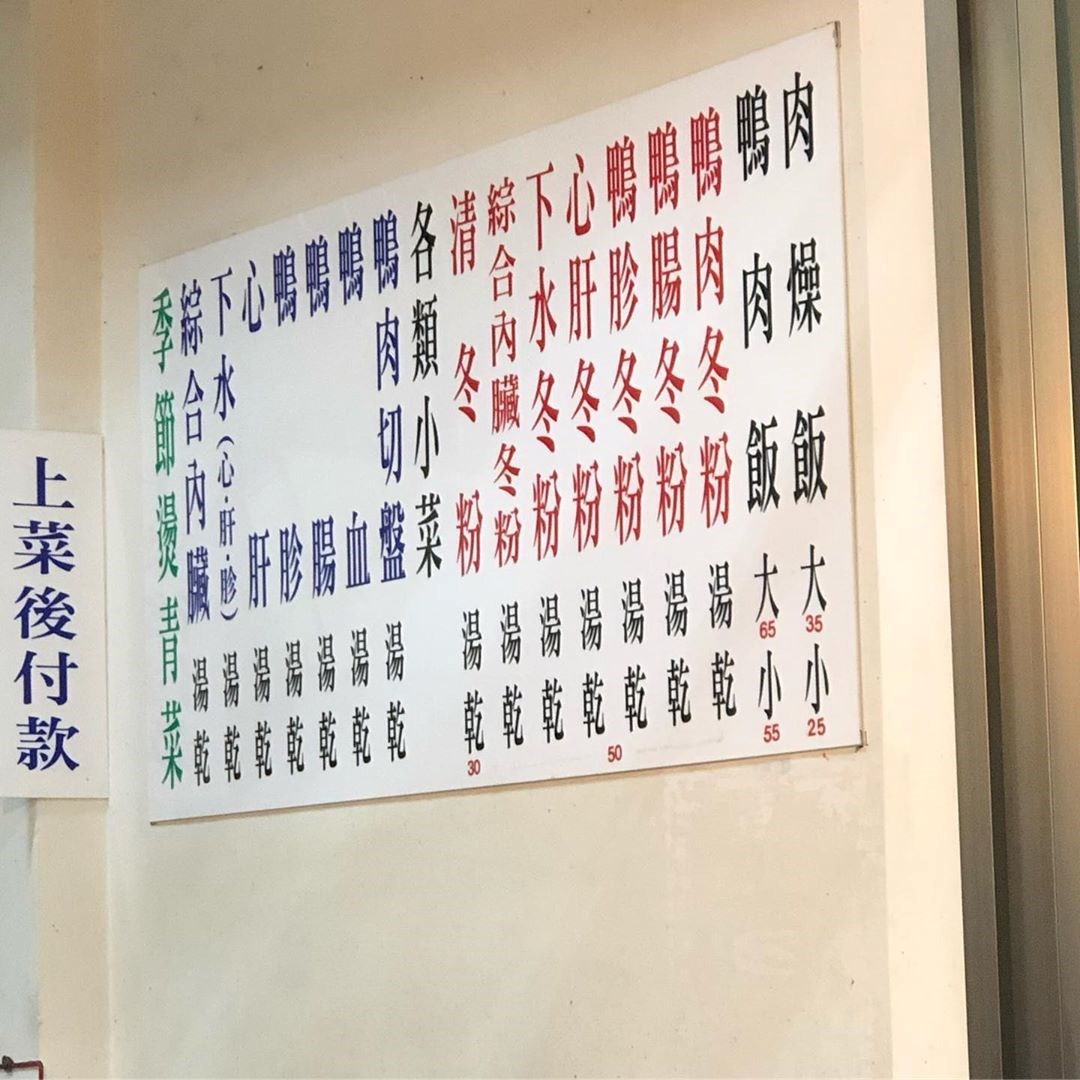 肉燥飯大35小25
鴨肉飯大65小55
鴨肉冬粉湯乾
鴨腸冬粉湯乾
鴨胗冬粉湯乾50
心肝冬粉湯乾
下水冬粉湯乾
綜合內臟冬粉湯乾
清冬粉湯乾30
各類小菜
鴨肉切盤湯乾
鴨血湯乾
鴨腸湯乾
鴨胗湯乾
心肝湯乾
下水(心.肝.胗)湯乾
綜合內臟湯乾
季節燙青菜
上菜後付款